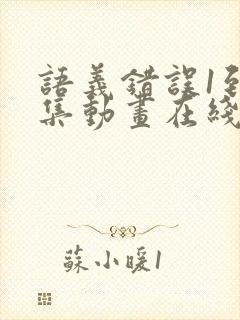 語義錯誤1
集動畫在綫
蘇小暖1